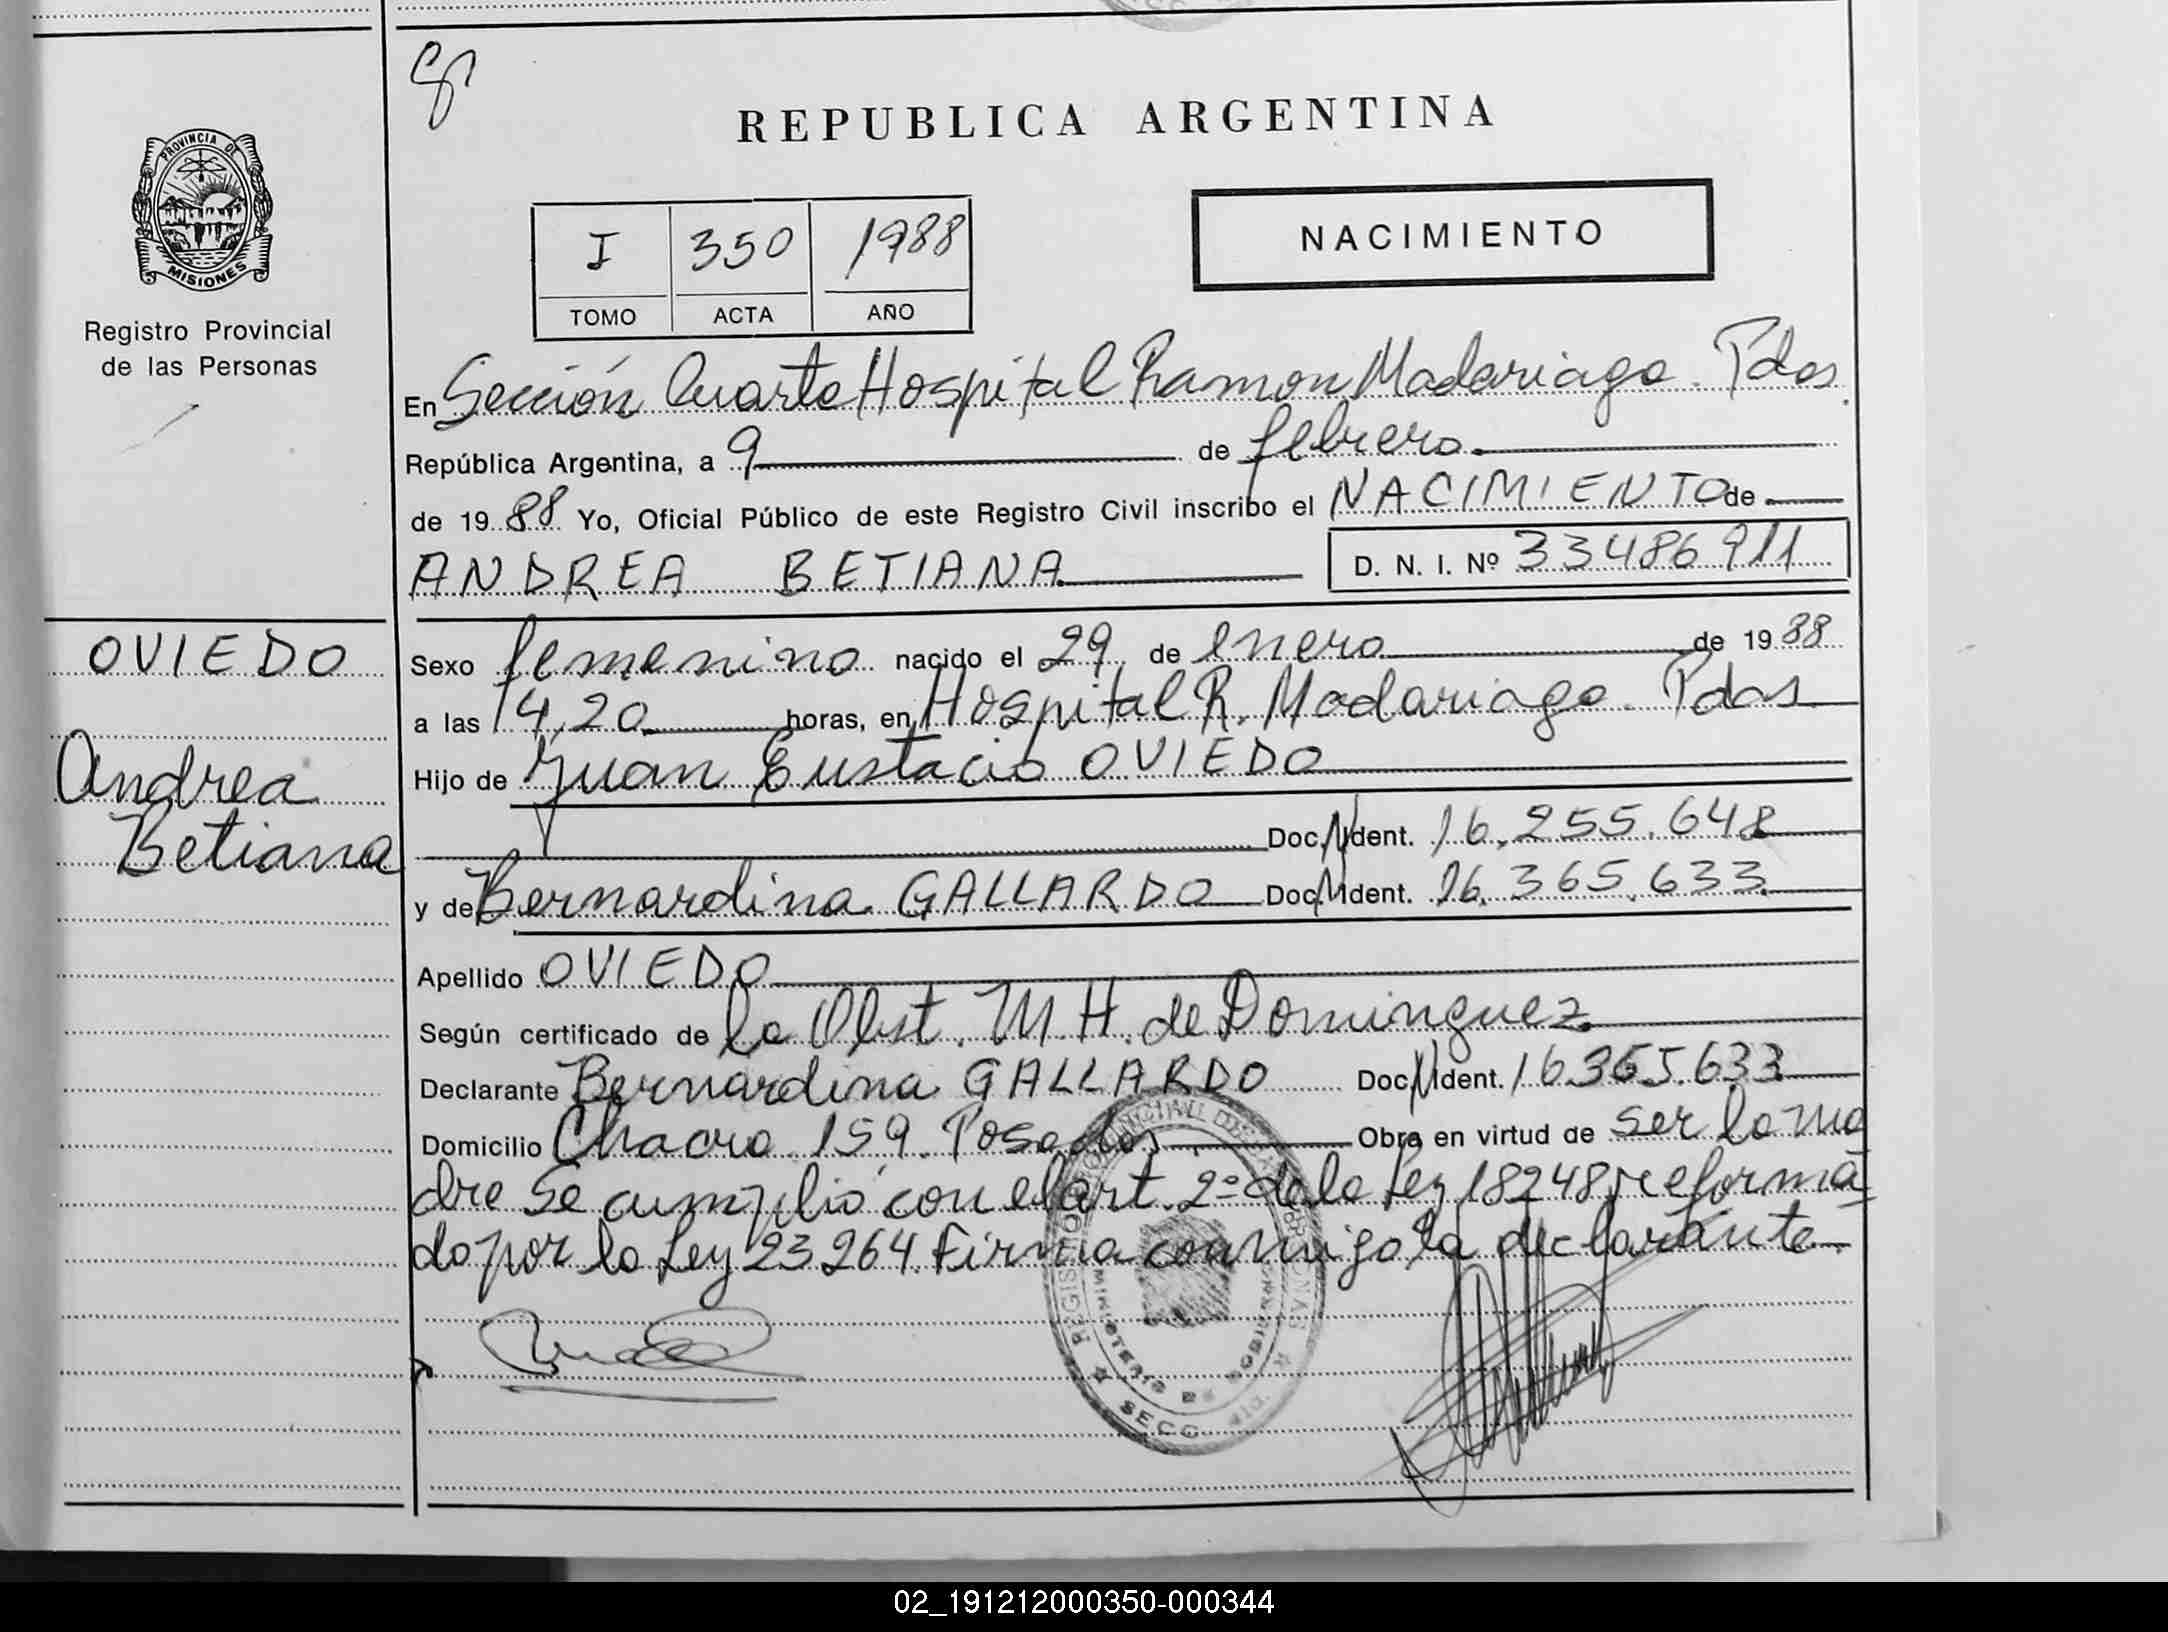 REPUBLICA ARGENTINA
PROVINCIA DE
MISIONES
Registro Provincial
de las Personas
I 350 1988
TOMO ACTA AÑO
NACIMIENTO
En Sección Cuarta Hospital Ramon Madariaga. Pdas.
República Argentina, a 9 de febrero
de 1988 Yo, Oficial Público de este Registro Civil inscribo el NACIMIENTO de
ANDREA BETIANA D. N. I. Nº 33486911
OVIEDO
Andrea
Betiana
Sexo femenino nacido el 29 de enero de 1988
a las 14,20 horas, en Hospital R. Madariaga. Pdas.
Hijo de Juan Eustacio OVIEDO
Doc. N Ident. 16.255.648
y de Bernardina GALLARDO Doc. N Ident. 16.365.633
Apellido OVIEDO
Según certificado de la Obst. M.H. de Dominguez
Declarante Bernardina GALLARDO Doc. N Ident. 16365.633
Domicilio Chacra 159. Posadas Obra en virtud de ser la ma
dre Se cumplió con el art. 2º de la Ley 18248 reforma
do por la Ley 23264. Firma conmigo la declarante
MINISTERIO DE GOBIERNO
SECC. 4ta.
02_191212000350-000344